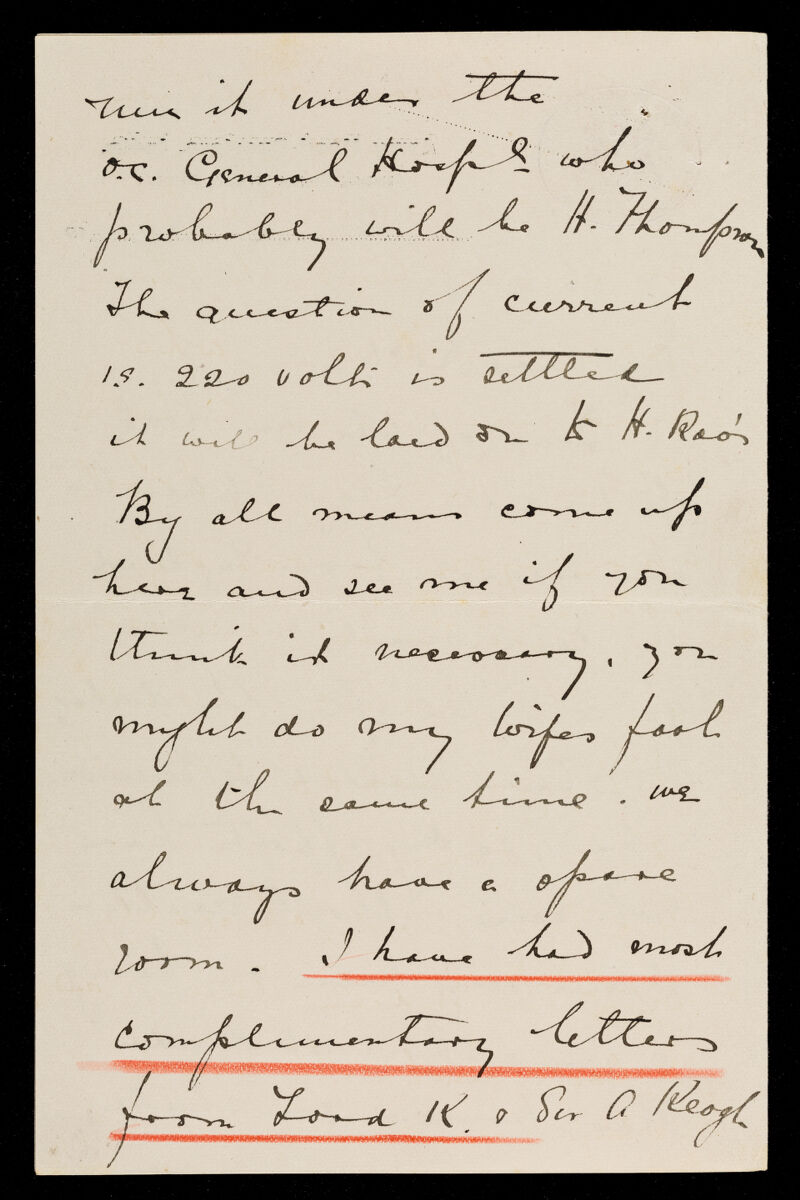 run it under the
O.C. General Hospl. who
probably will be H. Thompson
The question of current
is. 220 volts is settled
it will be laid on to H. Rao's
By all means come up
here and see me if you
think it necessary, you
might do my wifes foot
at the same time. we
always have a spare
room. I have had most
complimentary letters
from Lord K. & Sir A Keogh